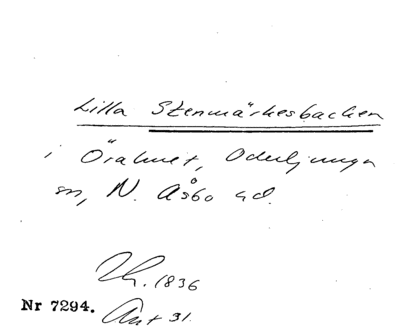 Lilla Stenmärkesbacken
i Örahult, Oderljunga
sn, N. Åsbo hd.
Lh. 1836
Nr 7294. Ant 31.